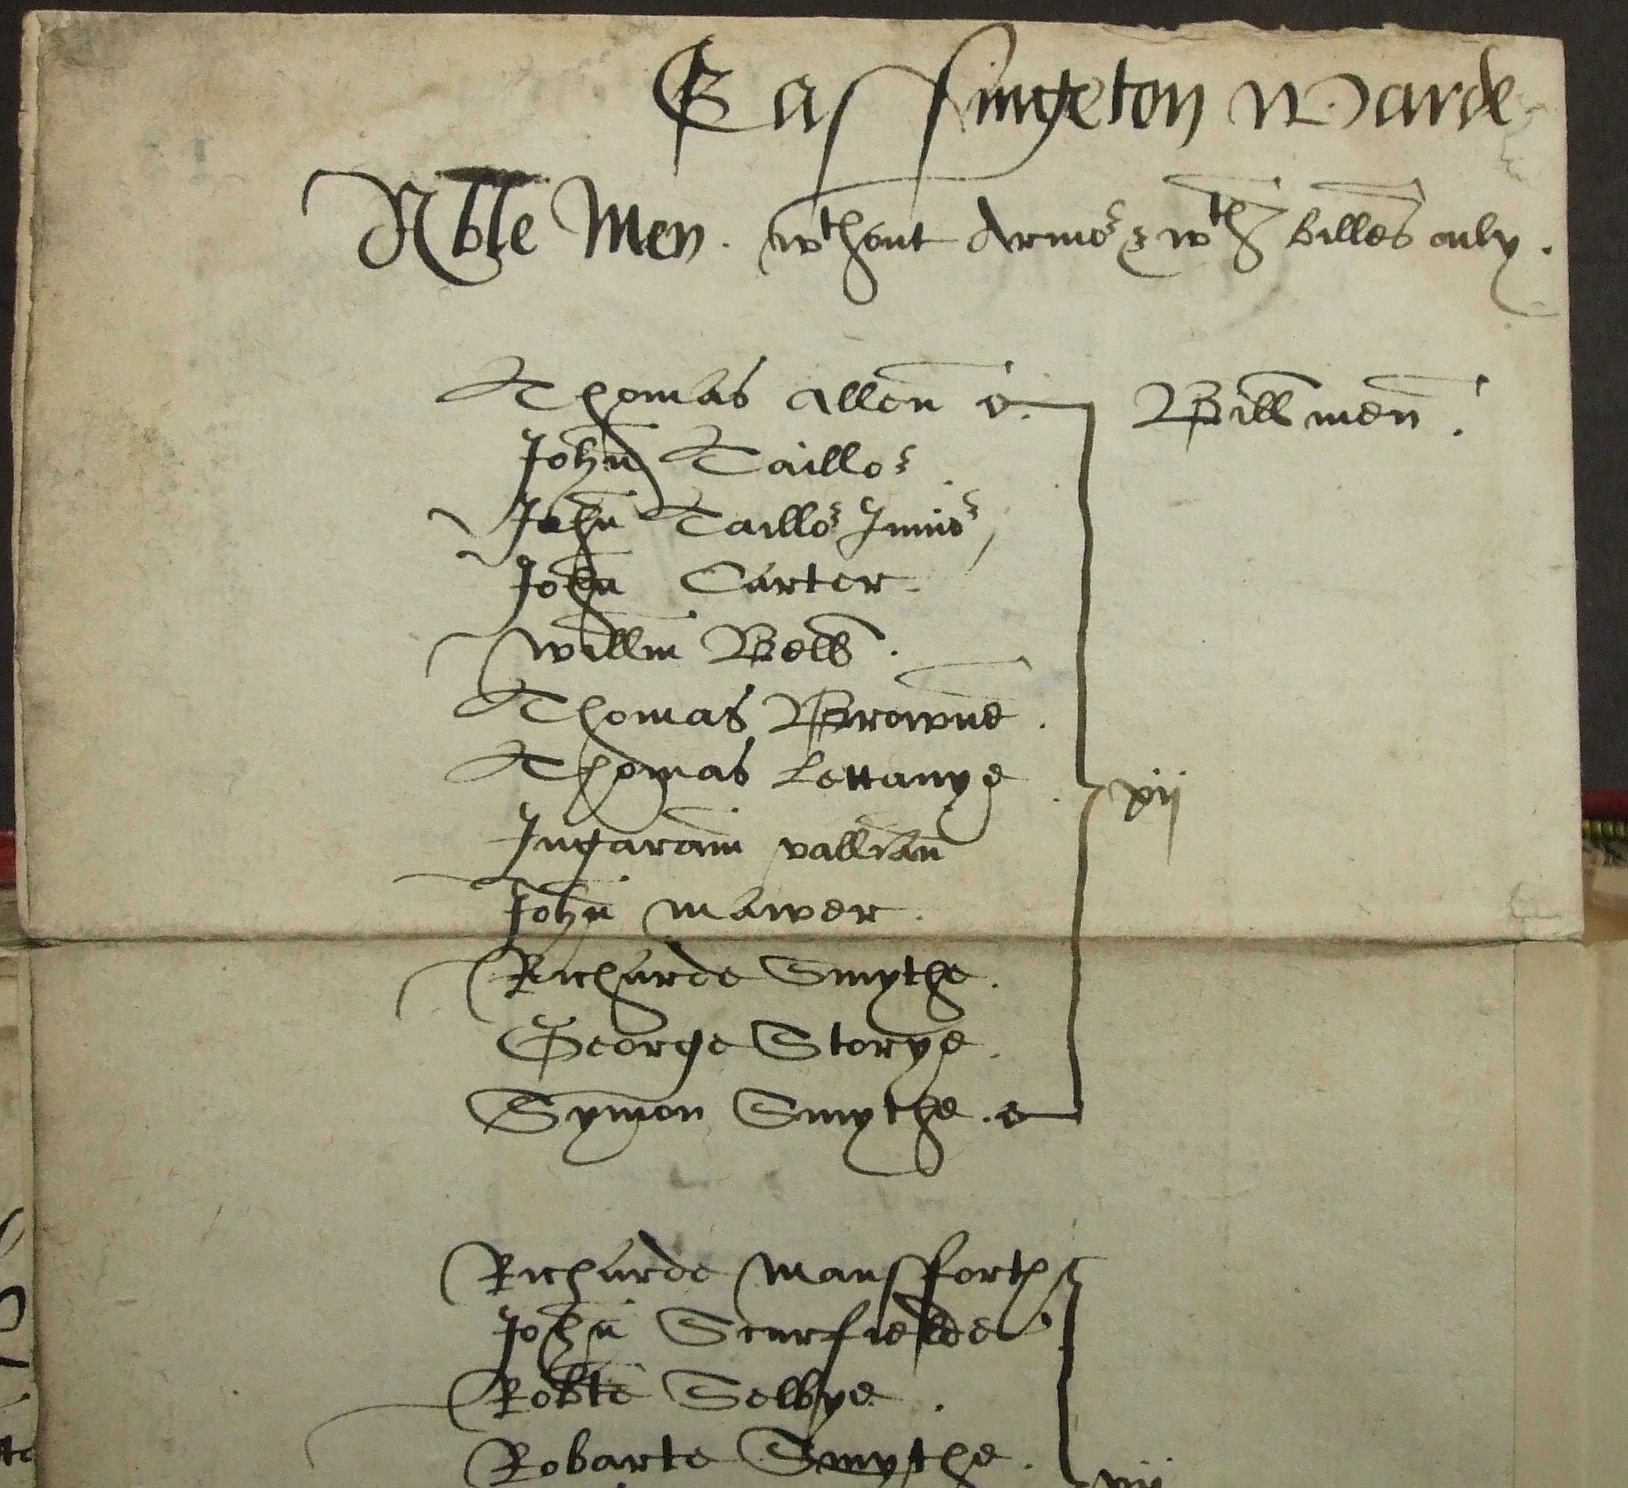 Eassingeton Warde
Able Men. wthout Armor & wth billes only.
Thomas Allen Billmen.
John Taillor
John Taillor Junior
John Carter.
Willm Bell.
Thomas Browne.
Thomas Lettanye xij
Ingaram vallian
John Mawer.
Richarde Smythe.
George Storye.
Symon Smythe.
Richarde Mansfforth
John Scurfielde
Robte Selbye.
Robarte Smythe.